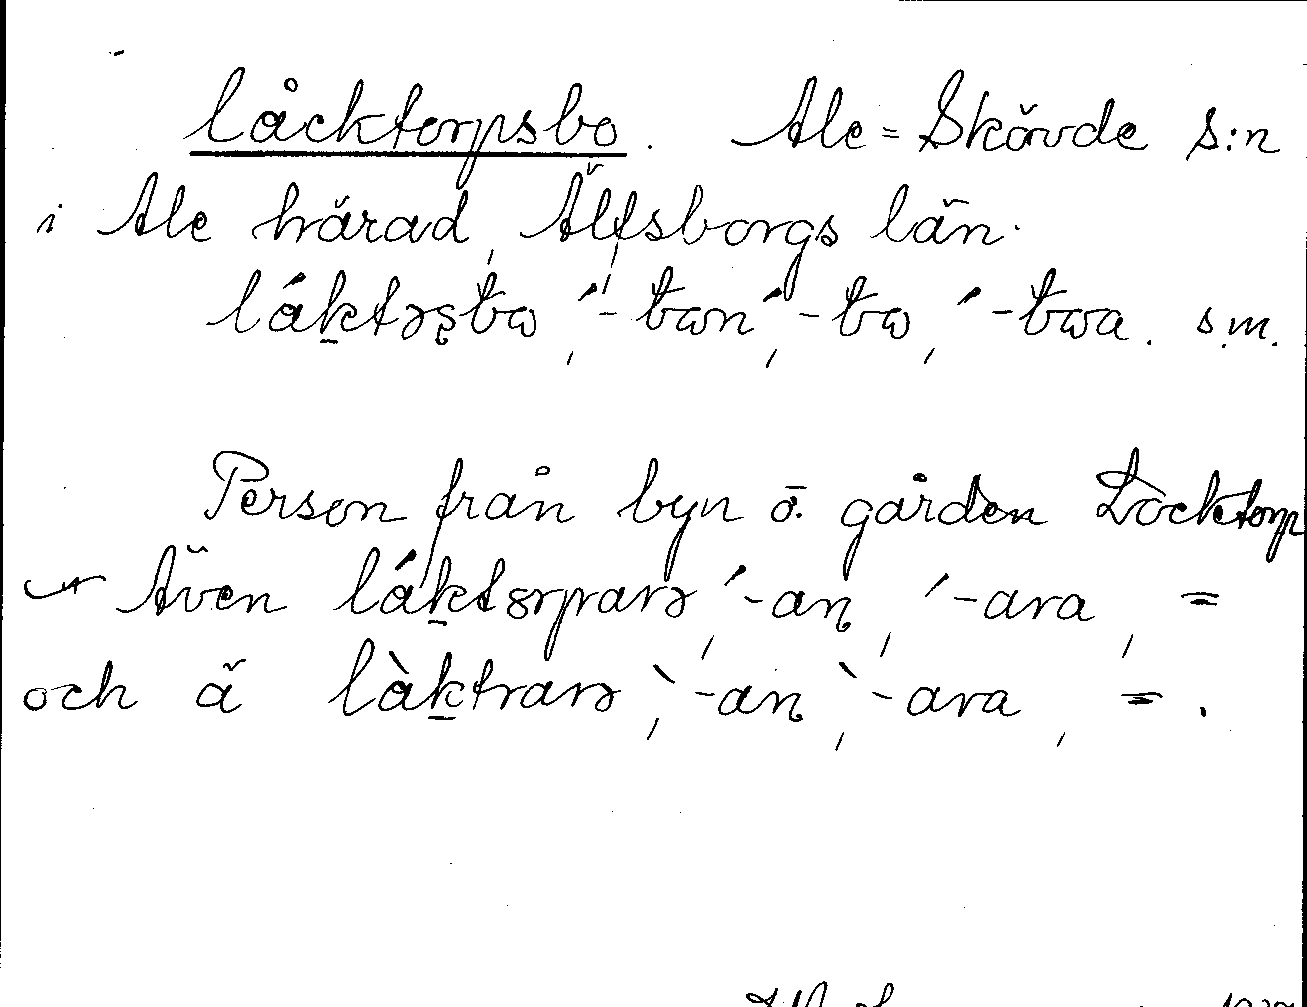 låcktorpsbo. Ale=Skövde s:n
i Ale härad, Älfsborgs län.
láktɔʂbɷ, ´-bɷn, ´-bɷ, ´-bɷa. s.m.
Person från byn o. gården Låcktorp
Även láktɔrparɔ, ´-aɳ, ´-ara, =
och ä làktrarɔ, `-aɳ, `-ara, = .